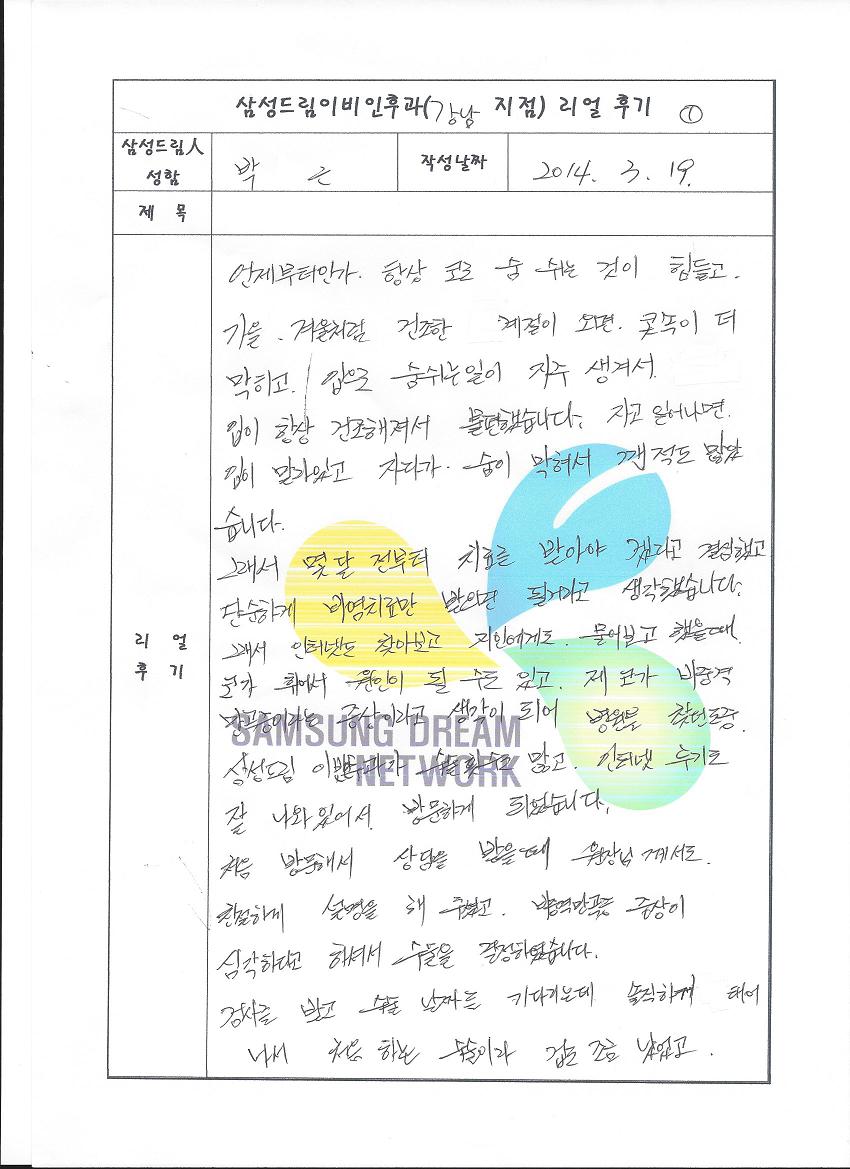 삼성드림이비인후과(강남 지점) 리얼 후기 ①
삼성드림人 성함
박 은
작성날짜
2014. 3. 19.
제 목
리 얼 후 기
언제부터인가. 항상 코로 숨 쉬는 것이 힘들고.
가을, 겨울처럼 건조한 계절이 오면. 콧속이 더
막히고. 입으로 숨쉬는일이 자주 생겨서.
입이 항상 건조해져서 불편했습니다. 자고 일어나면.
입이 말라있고 자다가. 숨이 막혀서 깬적도 많았
습니다.
그래서 몇달 전부터 치료를 받아야 겠다고 결심했고
단순하게 비염치료만 받으면 될거라고 생각했습니다.
그래서 인터넷도 찾아보고 지인에게도. 물어보고 했을때.
코가 휘어서 원인이 될 수도 있고. 제 코가 비중격
만곡증이라는 증상이라고 생각이 되어 병원을 찾던도중.
삼성드림 이비인후과가 수술횟수도 많고. 인터넷 후기도
잘 나와있어서. 방문하게 되었습니다.
처음 방문해서 상담을 받을때 원장님 께서도.
친절하게 설명을 해 주셨고. 비중격만곡증 증상이
심각하다고 하셔서 수술을 결정하였습니다.
검사를 받고 수술 날짜를 기다리는데 솔직하게 태어
나서 처음 하는 수술이라 겁도 조금 났었고.
SAMSUNG DREAM
NETWORK